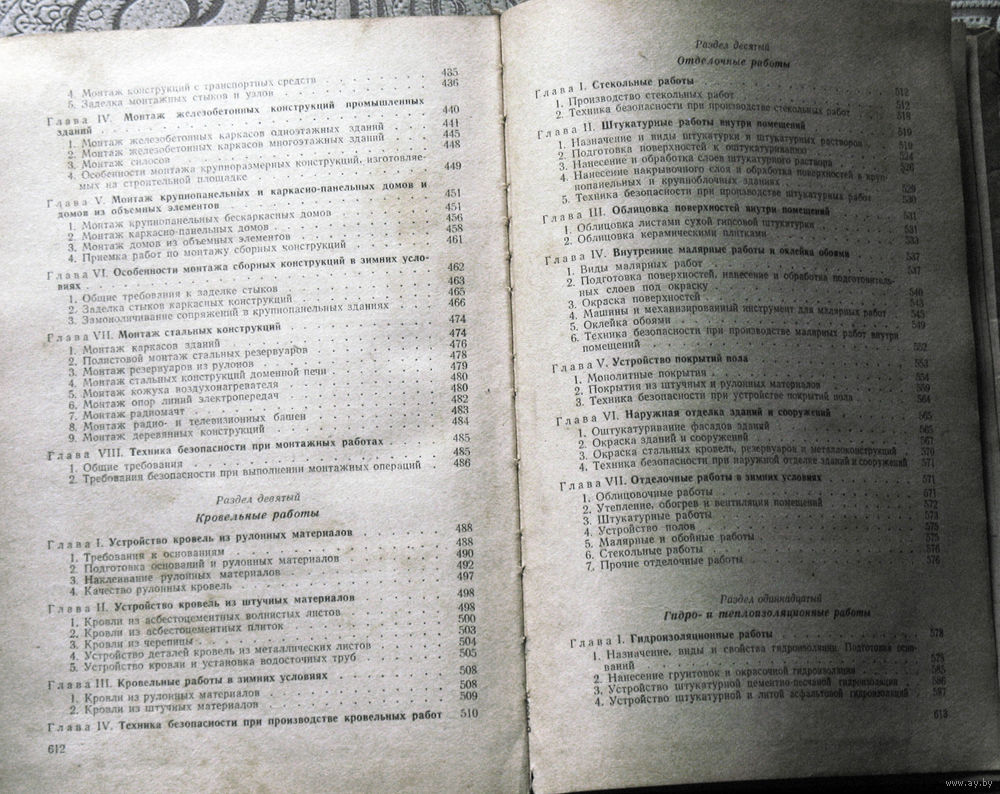 4. Монтаж конструкций с транспортных средств 435
5. Заделка монтажных стыков и узлов 436
Глава IV. Монтаж железобетонных конструкций промышленных
зданий 440
1. Монтаж железобетонных каркасов одноэтажных зданий 441
2. Монтаж железобетонных каркасов многоэтажных зданий 445
3. Монтаж силосов 448
4. Особенности монтажа крупноразмерных конструкций, изготовляе-
мых на строительной площадке 449
Глава V. Монтаж крупнопанельных и каркасно-панельных домов и
домов из объемных элементов 451
1. Монтаж крупнопанельных бескаркасных домов 451
2. Монтаж каркасно-панельных домов 456
3. Монтаж домов из объемных элементов 458
4. Приемка работ по монтажу сборных конструкций 461
Глава VI. Особенности монтажа сборных конструкций в зимних усло-
виях 462
1. Общие требования к заделке стыков 463
2. Заделка стыков каркасных конструкций 465
3. Замоноличивание сопряжений в крупнопанельных зданиях 466
Глава VII. Монтаж стальных конструкций 474
1. Монтаж каркасов зданий 474
2. Полистовой монтаж стальных резервуаров 476
3. Монтаж резервуаров из рулонов 478
4. Монтаж стальных конструкций доменной печи 479
5. Монтаж кожуха воздухонагревателя 480
6. Монтаж опор линий электропередач 480
7. Монтаж радиомачт 482
8. Монтаж радио- и телевизионных башен 483
9. Монтаж деревянных конструкций 484
Глава VIII. Техника безопасности при монтажных работах 485
1. Общие требования 485
2. Требования безопасности при выполнении монтажных операций 486
Раздел девятый
Кровельные работы
Глава I. Устройство кровель из рулонных материалов 488
1. Требования к основаниям 488
2. Подготовка оснований и рулонных материалов 490
3. Наклеивание рулонных материалов 492
4. Качество рулонных кровель 497
Глава II. Устройство кровель из штучных материалов 498
1. Кровли из асбестоцементных волнистых листов 498
2. Кровли из асбестоцементных плиток 500
3. Кровли из черепицы 503
4. Устройство деталей кровель из металлических листов 504
5. Устройство кровли и установка водосточных труб 505
Глава III. Кровельные работы в зимних условиях 508
1. Кровли из рулонных материалов 508
2. Кровли из штучных материалов 509
Глава IV. Техника безопасности при производстве кровельных работ 510
612
Раздел десятый
Отделочные работы
Глава I. Стекольные работы 512
1. Производство стекольных работ 512
2. Техника безопасности при производстве стекольных работ 518
Глава II. Штукатурные работы внутри помещений 519
1. Назначение и виды штукатурки и штукатурных растворов 519
2. Подготовка поверхностей к оштукатуриванию 524
3. Нанесение и обработка слоев штукатурного раствора
4. Нанесение накрывочного слоя и обработка поверхностей в круп-
нопанельных и крупноблочных зданиях 529
5. Техника безопасности при производстве штукатурных работ 530
Глава III. Облицовка поверхностей внутри помещений 531
1. Облицовка листами сухой гипсовой штукатурки 531
2. Облицовка керамическими плитками 533
Глава IV. Внутренние малярные работы и оклейка обоями 537
1. Виды малярных работ 537
2. Подготовка поверхностей, нанесение и обработка подготовитель-
ных слоев под окраску 540
3. Окраска поверхностей 543
4. Машины и механизированный инструмент для малярных работ 545
5. Оклейка обоями 549
6. Техника безопасности при производстве малярных работ внутри
помещений 552
Глава V. Устройство покрытий пола 553
1. Монолитные покрытия 554
2. Покрытия из штучных и рулонных материалов 559
3. Техника безопасности при устройстве покрытий пола 564
Глава VI. Наружная отделка зданий и сооружений 565
1. Оштукатуривание фасадов зданий 565
2. Окраска зданий и сооружений 567
3. Окраска стальных кровель, резервуаров и металлоконструкций 570
4. Техника безопасности при наружной отделке зданий и сооружений 571
Глава VII. Отделочные работы в зимних условиях 571
1. Облицовочные работы 571
2. Утепление, обогрев и вентиляция помещений 572
3. Штукатурные работы 573
4. Устройство полов 575
5. Малярные и обойные работы 575
6. Стекольные работы 576
7. Прочие отделочные работы 576
Раздел одиннадцатый
Гидро- и теплоизоляционные работы
Глава I. Гидроизоляционные работы 578
1. Назначение, виды и свойства гидроизоляции. Подготовка осно-
ваний 578
2. Нанесение грунтовок и окрасочной гидроизоляции 585
3. Устройство штукатурной цементно-песчаной гидроизоляции 586
4. Устройство штукатурной и литой асфальтовой гидроизоляций 597
613
www.ay.by